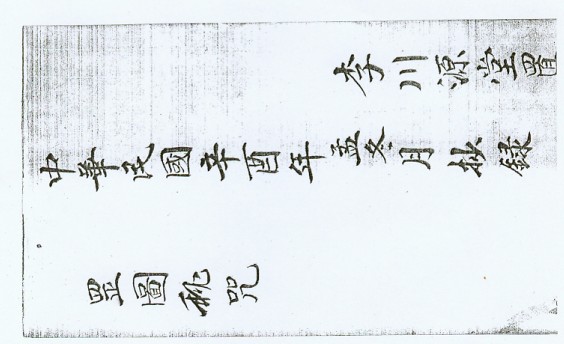 李川源堂置
中華民國辛酉年孟冬月抄錄
罡圖秘咒